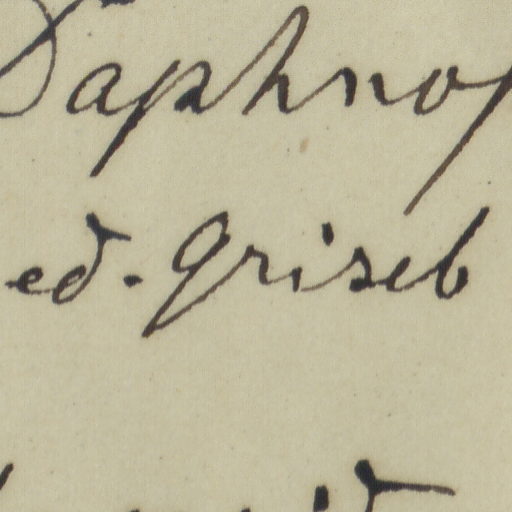 Daphnop
ed. Griseb